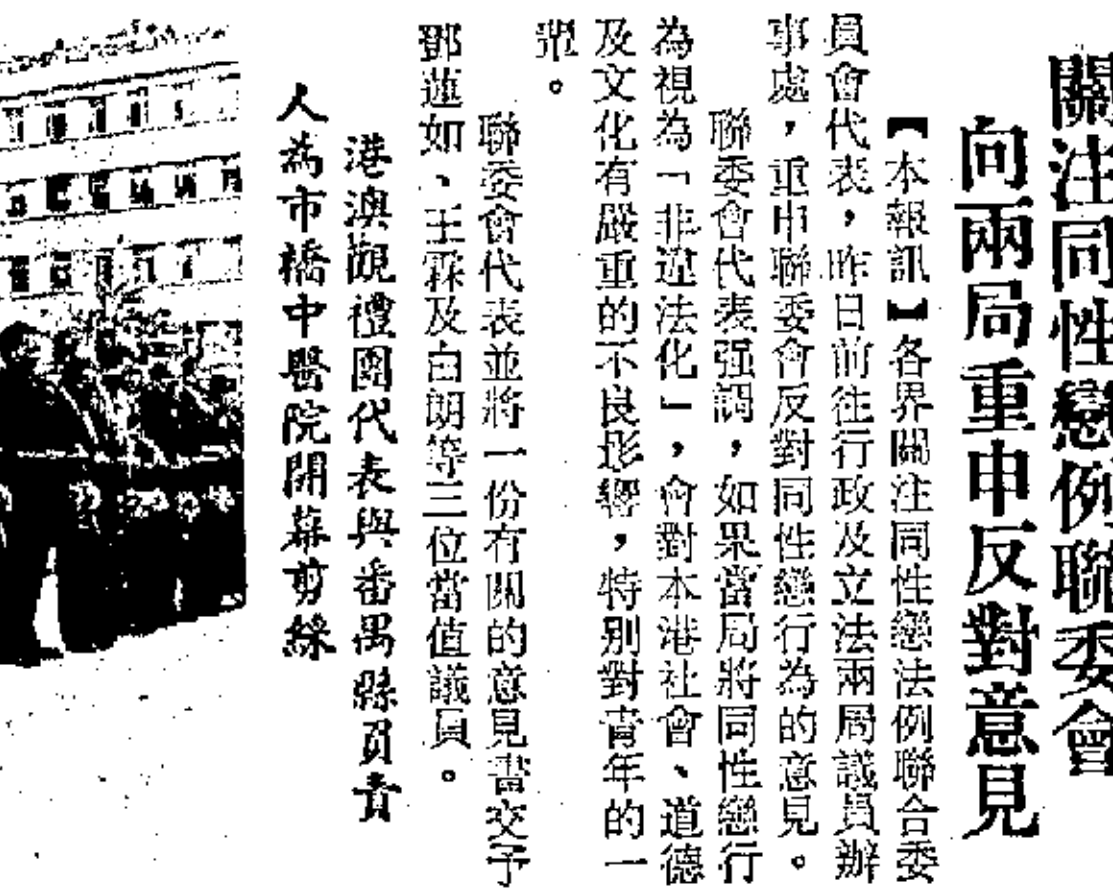 關注同性戀例聯委會
向兩局重申反對意見
【本報訊】各界關注同性戀法例聯合委
員會代表，昨日前往行政及立法兩局議員辦
事處，重申聯委會反對同性戀行為的意見。
聯委會代表强調，如果當局將同性戀行
為視為「非違法化」，會對本港社會、道德
及文化有嚴重的不良影響，特別對青年的一
輩。
聯委會代表並將一份有關的意見書交予
鄧蓮如、王霖及白朗等三位當值議員。
港澳觀禮團代表與番禺縣負責
人為市橋中醫院開幕剪綵